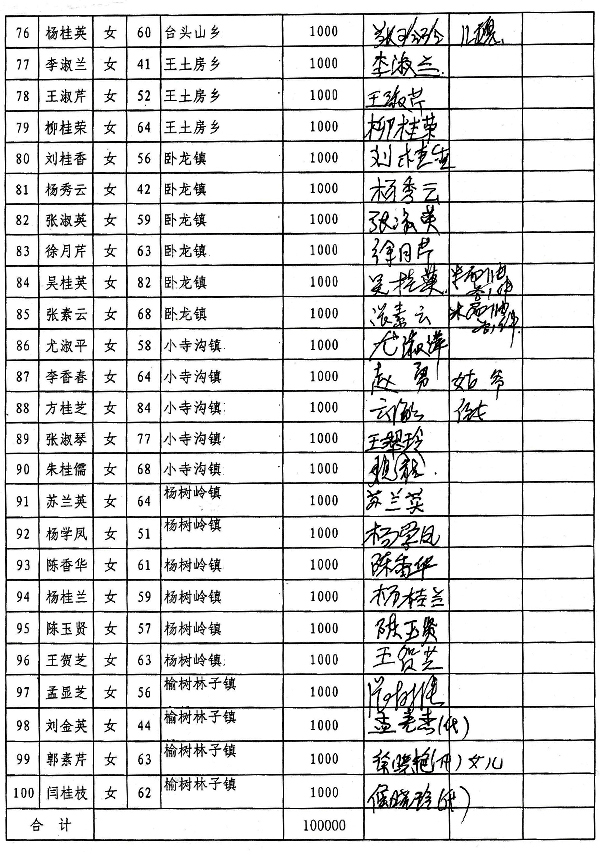 76 杨桂英 女 60 台头山乡 1000 儿媳
77 李淑兰 女 41 王土房乡 1000 李淑兰
78 王淑芹 女 52 王土房乡 1000 王淑芹
79 柳桂荣 女 64 王土房乡 1000 柳桂荣
80 刘桂香 女 56 卧龙镇 1000
81 杨秀云 女 42 卧龙镇 1000 杨秀云
82 张淑英 女 59 卧龙镇 1000 张淑英
83 徐月芹 女 63 卧龙镇 1000 徐月芹
84 吴桂英 女 82 卧龙镇 1000 吴桂英
85 张素云 女 68 卧龙镇 1000 张素云
86 尤淑平 女 58 小寺沟镇 1000 尤淑萍
87 李香春 女 64 小寺沟镇 1000 赵勇
88 方桂芝 女 84 小寺沟镇 1000
89 张淑琴 女 77 小寺沟镇 1000
90 朱桂儒 女 68 小寺沟镇 1000
91 苏兰英 女 64 杨树岭镇 1000 苏兰英
92 杨学凤 女 51 杨树岭镇 1000 杨学凤
93 陈香华 女 61 杨树岭镇 1000 陈香华
94 杨桂兰 女 59 杨树岭镇 1000 杨桂兰
95 陈玉贤 女 57 杨树岭镇 1000 陈玉贤
96 王贺芝 女 63 杨树岭镇 1000 王贺芝
97 孟显芝 女 56 榆树林子镇 1000
98 刘金英 女 44 榆树林子镇 1000 (代)
99 郭素芹 女 63 榆树林子镇 1000 徐晓艳(代) 女儿
100 闫桂枝 女 62 榆树林子镇 1000 侯晓玲(代)
合 计 100000